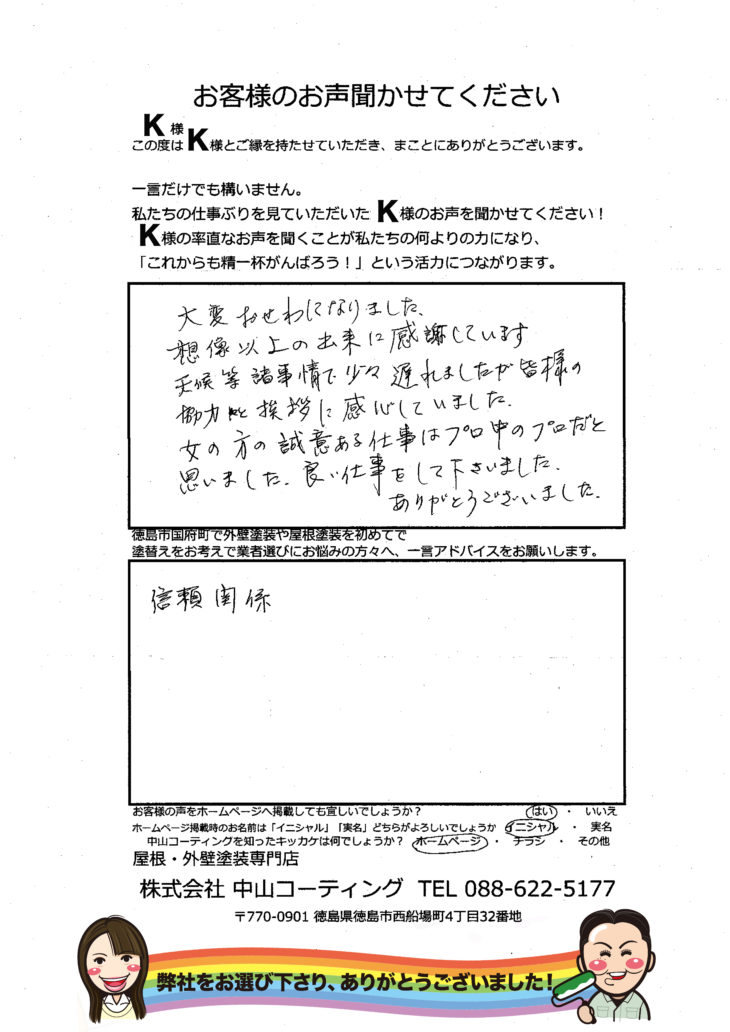 お客様のお声聞かせてください
K様
この度はK様とご縁を持たせていただき、まことにありがとうございます。
一言だけでも構いません。
私たちの仕事ぶりを見ていただいたK様のお声を聞かせてください！
K様の率直なお声を聞くことが私たちの何よりの力になり、
「これからも精一杯がんばろう！」という活力につながります。
大変おせわになりました、
想像以上の出来に感謝しています
天候等諸事情で少々遅れましたが皆様の
協力と挨拶に感心していました.
女の方の誠意ある仕事はプロ中のプロだと
思いました. 良い仕事をして下さいました.
ありがとうございました.
徳島市国府町で外壁塗装や屋根塗装を初めてで
塗替えをお考えで業者選びにお悩みの方々へ、一言アドバイスをお願いします。
信頼関係
お客様の声をホームページへ掲載しても宜しいでしょうか？ はい ・ いいえ
ホームページ掲載時のお名前は「イニシャル」「実名」どちらがよろしいでしょうか イニシャル ・ 実名
中山コーティングを知ったキッカケは何でしょうか？ ホームページ ・ チラシ ・ その他
屋根・外壁塗装専門店
株式会社 中山コーティング TEL 088-622-5177
〒770-0901 徳島県徳島市西船場町4丁目32番地
弊社をお選び下さり、ありがとうございました！